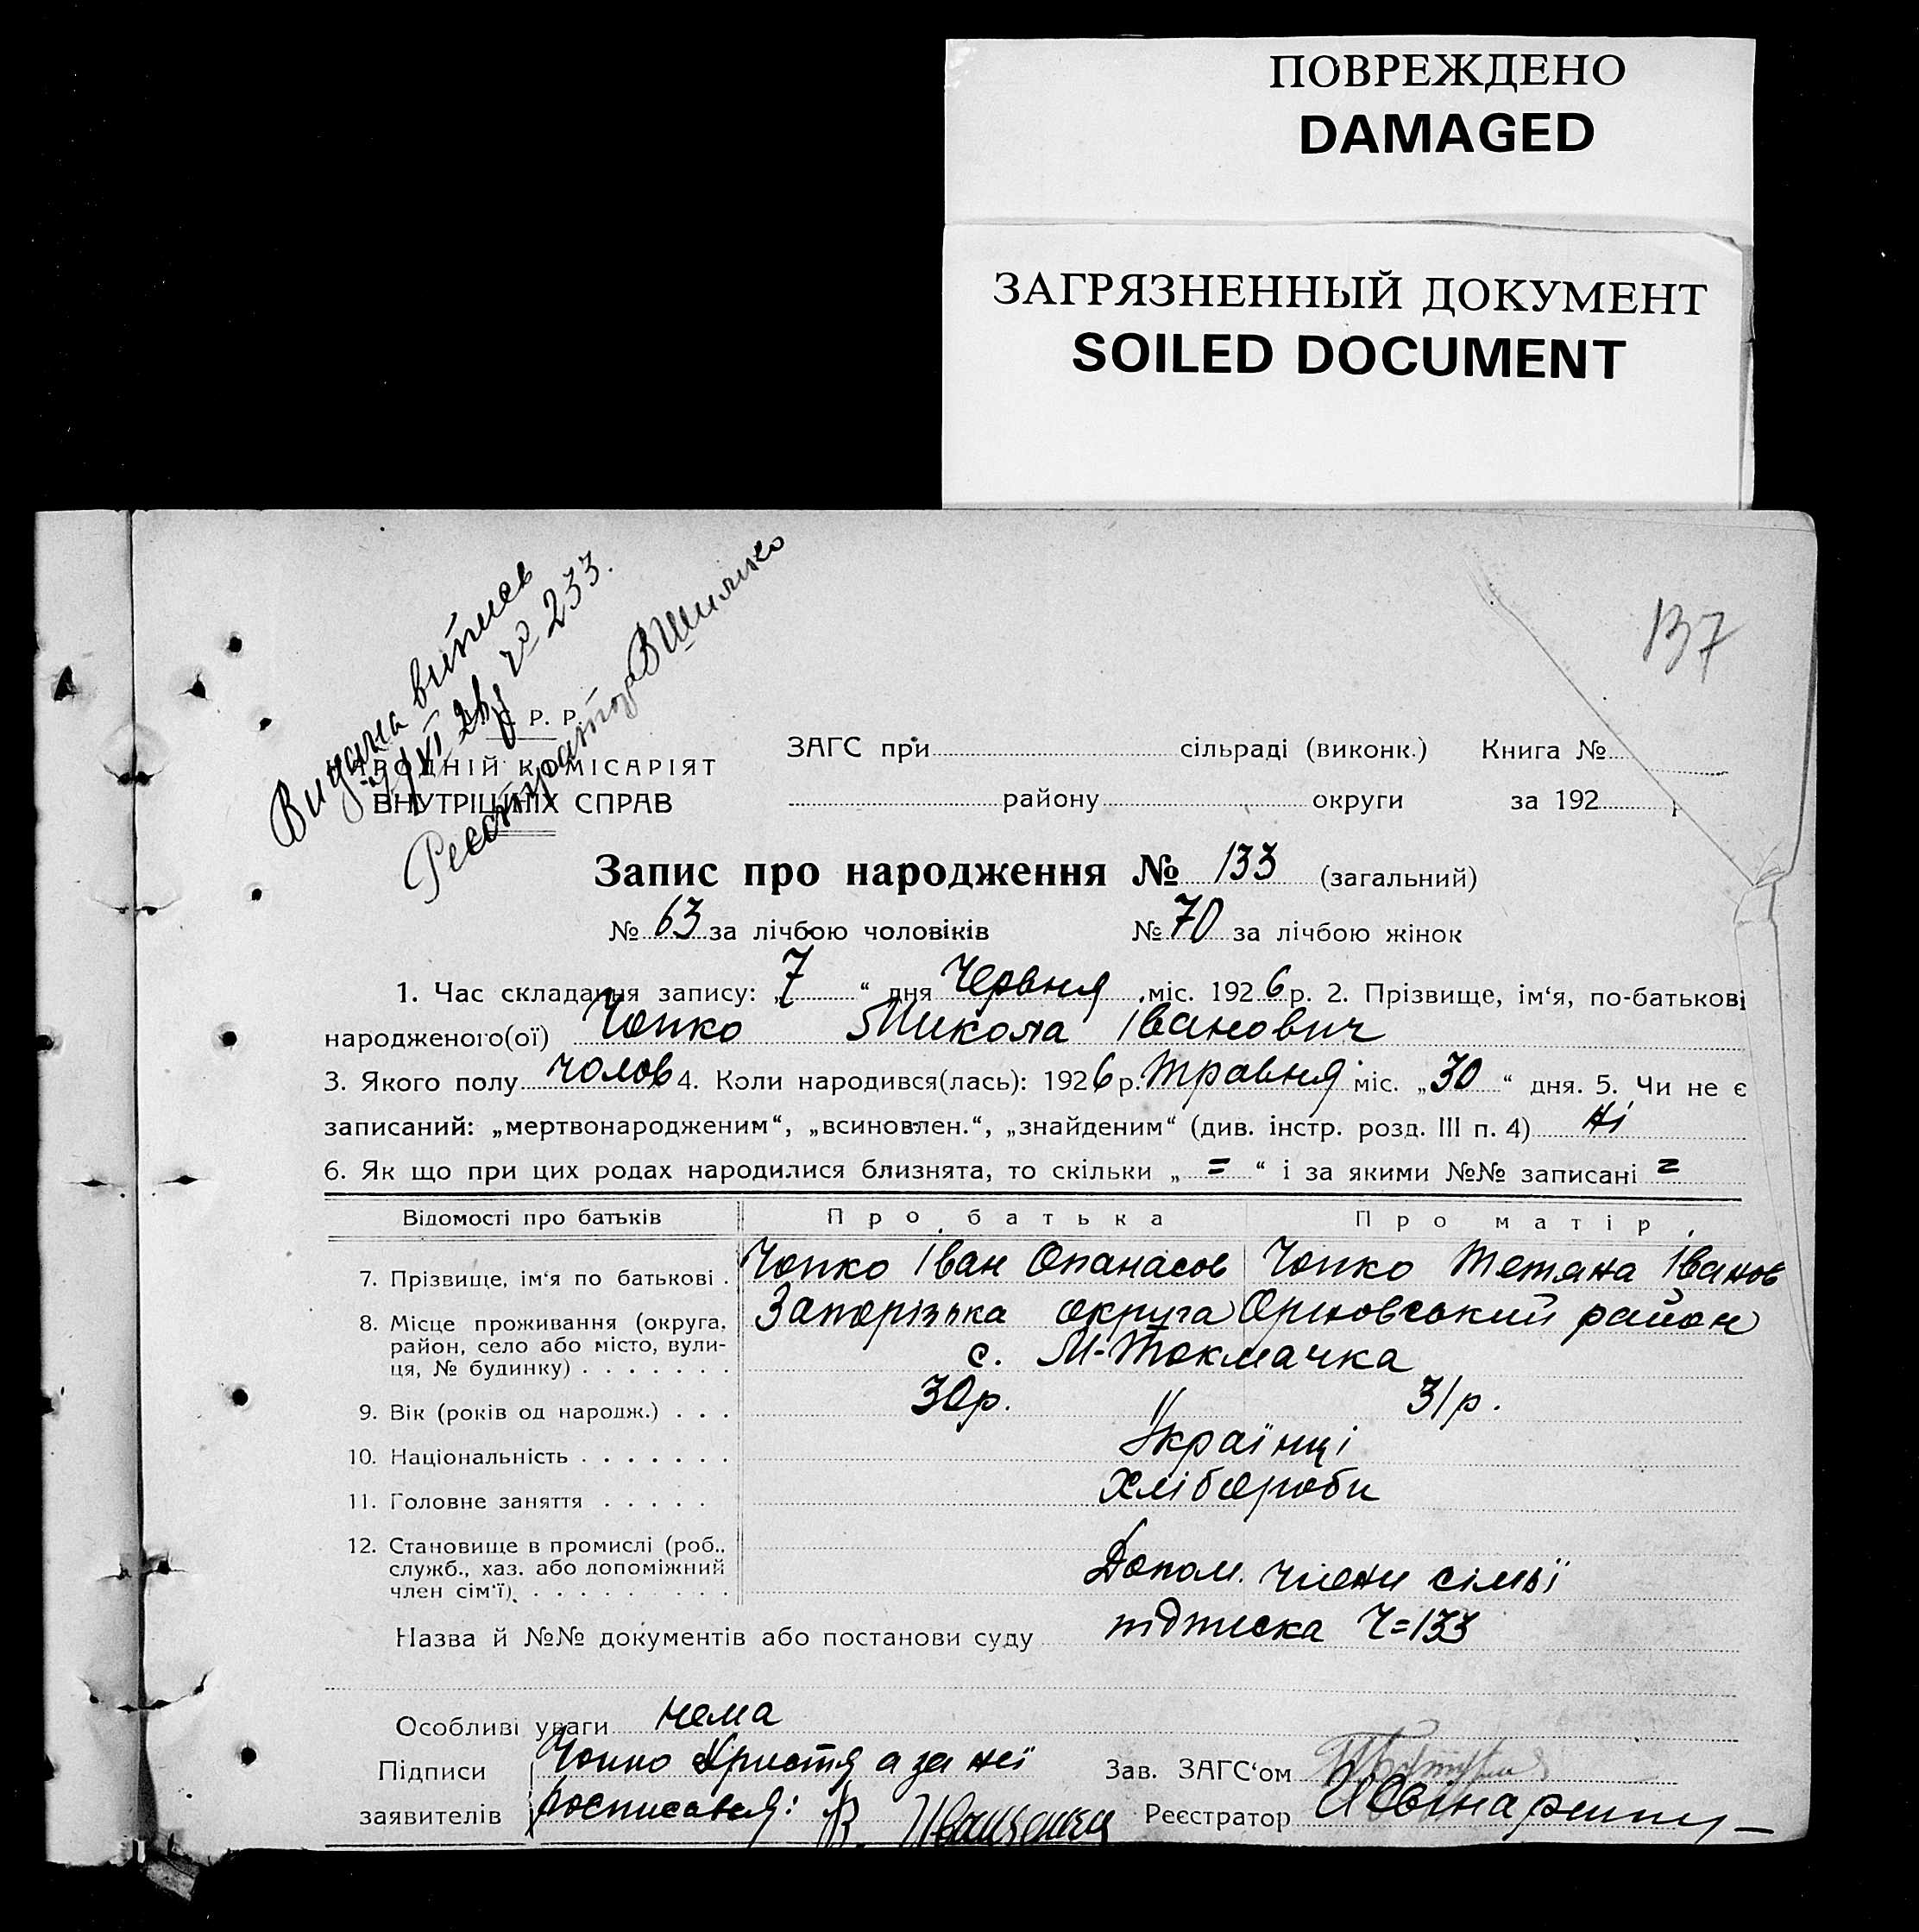 ПОВРЕЖДЕНО
DAMAGED
ЗАГРЯЗНЕННЫЙ ДОКУМЕНТ
SOILED DOCUMENT
137
Видана витись
233.
Реєстратор
Р. Р.
НАРОДНІЙ КОМІСАРІЯТ
ВНУТРІШНІХ СПРАВ
ЗАГС при сільраді (виконк.) Книга №
району округи за 192
Запис про народження № 133 (загальний)
№ 63 за лічбою чоловіків № 70 за лічбою жінок
1. Час складання запису: „7“ дня Червня міс. 1926 р. 2. Прізвище, ім‘я, по-батькові
народженого(ої) Чопко Микола Іванович
3. Якого полу чолов 4. Коли народився(лась): 1926 р. Травня міс. „30“ дня. 5. Чи не є
записаний: „мертвонародженим“, „всиновлен.“, „знайденим“ (див. інстр. розд. III п. 4) Ні
6. Як що при цих родах народилися близнята, то скільки „ = “ і за якими №№ записані =
Відомості про батьків Про батька Про матір
7. Прізвище, ім‘я по батькові . Чопко Іван Опанасов Чопко Тетяна Іванов
8. Місце проживання (округа, район, село або місто, вули-ця, № будинку) . . . . . . . Запорізька округа Оріховський район
с. М-Токмачка
9. Вік (років од народж.) . . . 30 р. 31 р.
10. Національність . . . . . . . Українці
11. Головне заняття . . . . . Хлібороби
12. Становище в промислі (роб., служб., хаз. або допоміжний член сім‘ї). Допом. члени сімьї
Назва й №№ документів або постанови суду підписка Ч=133
Особливі уваги нема
Підписи Чопко Христя а за неї
заявителів росписався: В. Іващенко
Зав. ЗАГС‘ом
Реєстратор